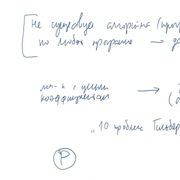 не существует алгоритма (прог
по любой программе → д
мн-н с целыми →
коэффициентами (
"10 проблема Гильбер
P